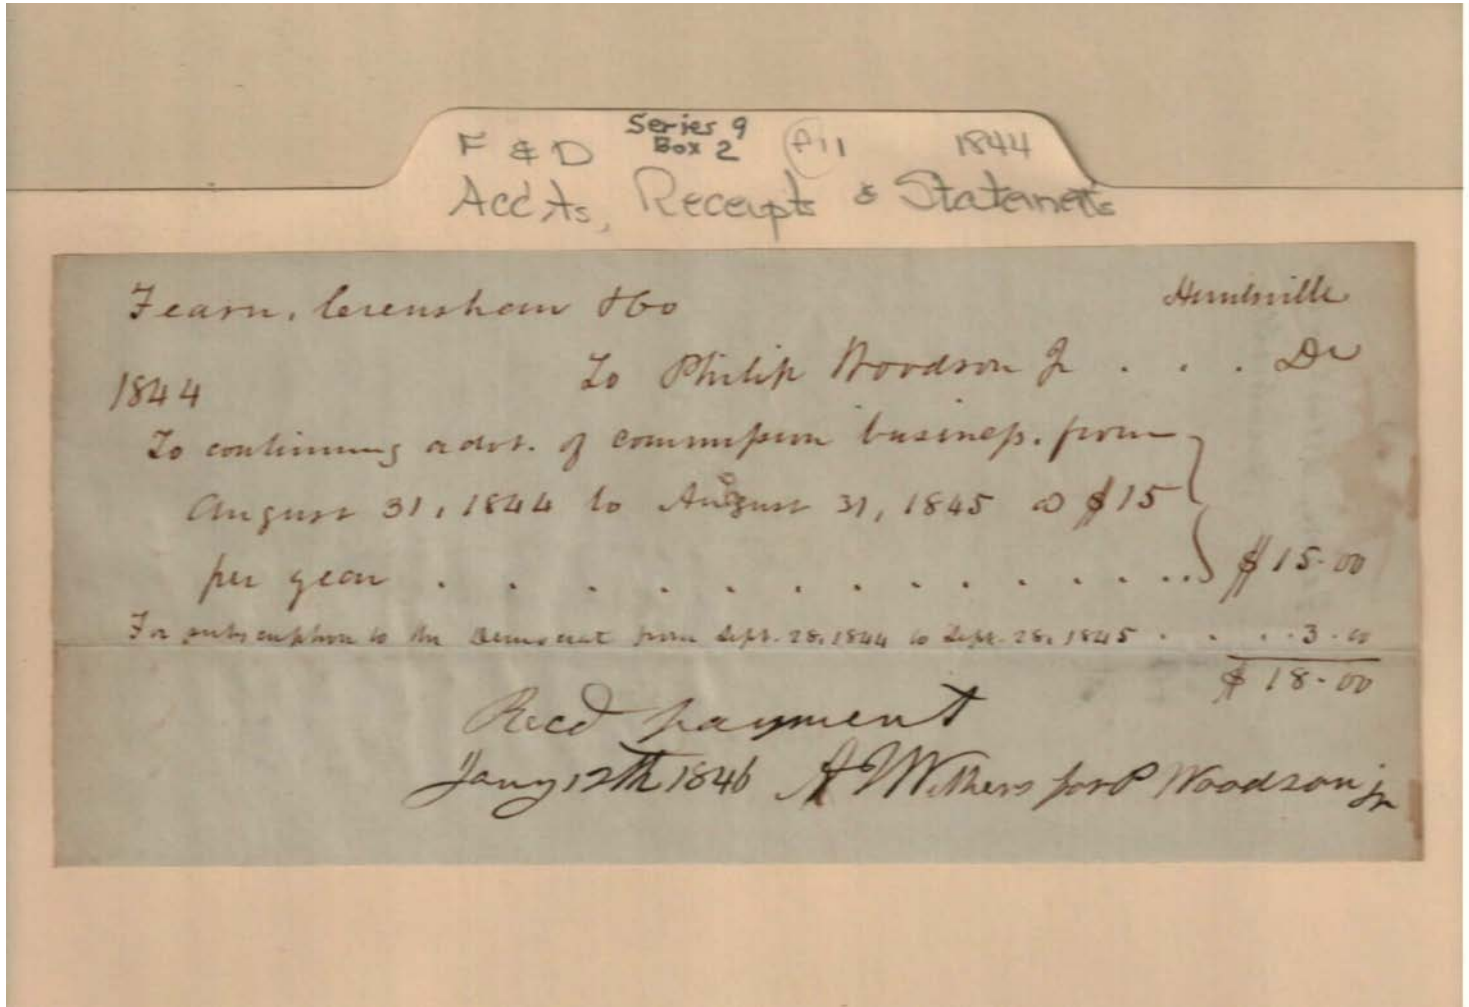 Series 9
F & D Box 2 F11 1844
Accts, Receipts & Statements
Huntsville
Fearn, Crenshaw & Co
To Philip Woodson Jr . . . Dr
1844
To continuing advt. of commission business. from
August 31, 1844 to August 31, 1845 @ $15
per year . . . . . . . . . . . . . $15.00
For subscription to the Democrat from Sept. 28, 1844 to Sept. 28, 1845 . . . . 3.00
$18.00
Recd payment
Jany 12th 1846 A Withers for P Woodson jr